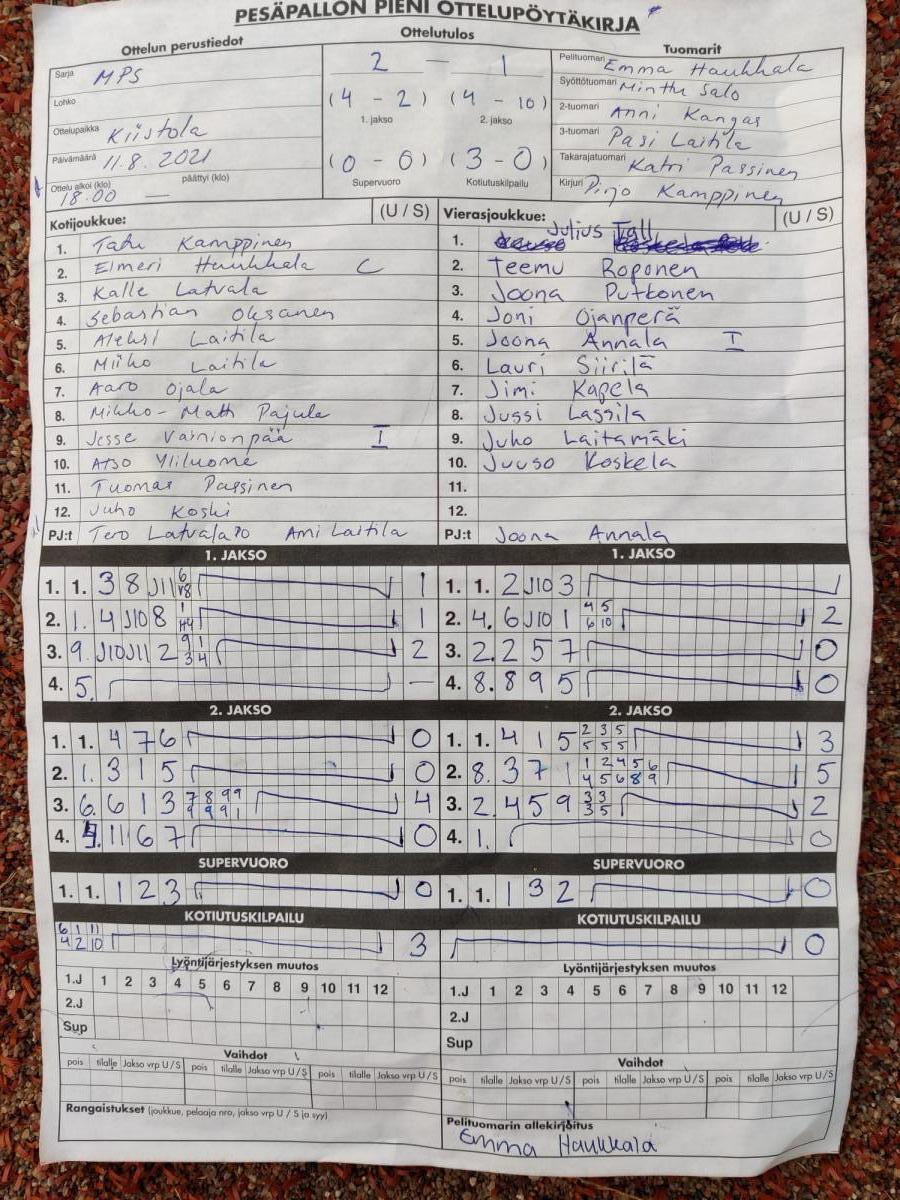 PESÄPALLON PIENI OTTELUPÖYTÄKIRJA
Ottelun perustiedot
Sarja MPS
Lohko
Ottelupaikka Kiistola
Päivämäärä 11.8.2021
Ottelu alkoi (klo) päättyi (klo)
18.00 —
Ottelutulos
2 — 1
(4 - 2) (4 - 10)
1. jakso 2. jakso
(0 - 0) (3 - 0)
Supervuoro Kotiutuskilpailu
Tuomarit
Pelituomari Emma Haukkala
Syöttötuomari Minttu Salo
2-tuomari Anni Kangas
3-tuomari Pasi Laitila
Takarajatuomari Katri Passinen
Kirjuri Pirjo Kamppinen
Kotijoukkue: (U / S)
1. Tatu Kamppinen
2. Elmeri Haukkala C
3. Kalle Latvala
4. Sebastian Oksanen
5. Aleksi Laitila
6. Miiko Laitila
7. Aaro Ojala
8. Mikko-Matti Pajula
9. Jesse Vainionpää I
10. Atso Yliluoma
11. Tuomas Passinen
12. Juho Koski
PJ:t Tero Latvala Ami Laitila
Vierasjoukkue: (U / S)
1. Julius Tall
2. Teemu Roponen
3. Joona Putkonen
4. Joni Ojanperä
5. Joona Annala I
6. Lauri Siirilä
7. Jimi Kapela
8. Jussi Lassila
9. Juho Laitamäki
10. Juuso Koskela
11.
12.
PJ:t Joona Annala
1. JAKSO
1. 1. 3 8 J11 6 1
2. 1. 4 J10 8 1 1
3. 9. J10 J11 2 9 1 2
3 4
4. 5. —
1. JAKSO
1. 1. 2 J10 3
2. 4. 6 J10 1 4 5 2
6 10
3. 2. 2 5 7 0
4. 8. 8 9 5 0
2. JAKSO
1. 1. 4 7 6 0
2. 1. 3 1 5 0
3. 6. 6 1 3 7 8 9 9 4
9 9 9 1
4. 11 6 7 0
2. JAKSO
1. 1. 4 1 5 2 3 5 3
5 5 5
2. 8. 3 7 1 1 2 4 5 6 5
4 5 6 8 9
3. 2. 4 5 9 3 3 2
3 5
4. 1. 0
SUPERVUORO
1. 1. 1 2 3 0
SUPERVUORO
1. 1. 1 3 2 0
KOTIUTUSKILPAILU
6 1 11 3
4 2 10
KOTIUTUSKILPAILU
0
Lyöntijärjestyksen muutos
1.J 1 2 3 4 5 6 7 8 9 10 11 12
2.J
Sup
Lyöntijärjestyksen muutos
1.J 1 2 3 4 5 6 7 8 9 10 11 12
2.J
Sup
Vaihdot
pois tilalle Jakso vrp U / S pois tilalle Jakso vrp U / S pois tilalle Jakso vrp U / S
Vaihdot
pois tilalle Jakso vrp U / S pois tilalle Jakso vrp U / S pois tilalle Jakso vrp U / S
Rangaistukset (joukkue, pelaaja nro, jakso vrp U / S ja syy)
Pelituomarin allekirjoitus
Emma Haukkala